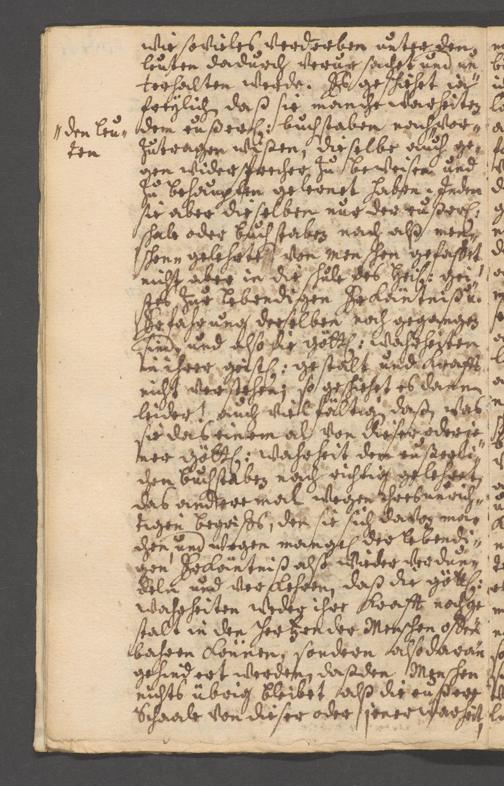 wie so vieles verderben unter den
leuten dadurch verursachet und un
terhalten werde. Es geschiehet ja
freylich, daß sie manche warheiten
"den leu-
ten
dem eußerl: buchstaben nach vor-
zutragen wißen, dieselbe auch ge-
gen widersprecher zu beweisen und
zu behaupten gelernet haben. Indem
sie aber dieselben nur der eußerl:
schale oder buchstaben nach als men-
schen gelehrte von menschen gefasset
nicht aber in die schule des heil: gei-
stes zur lebendigen Erkäntniß u.
Erfahrung derselben noch gegangen
sind, und also die göttl: wahrheiten
in ihrer geistl: gestalt und Krafft
nicht verstehen; so geschiehet es dann
leider! auch vielfältig, daß, was
sie das eine mal von dieser oder je-
ner göttl: wahrheit dem eußerli-
chen buchstaben nach richtig gelehret,
das andere mal wegen ihres unrich-
tigen begriffes, den sie sich davon ma-
chen, und wegen mangel der lebendi-
gen Erkäntniß also wieder verdun-
keln und verkehren, daß die göttl:
wahrheiten weder ihre Krafft noch ge-
stalt in den hertzen der Menschen offen
bahren können, sondern also daran
gehindert werden, daß den Menschen
nichts übrig bleibet als die eußere
Schaale von dieser oder jener warheit,